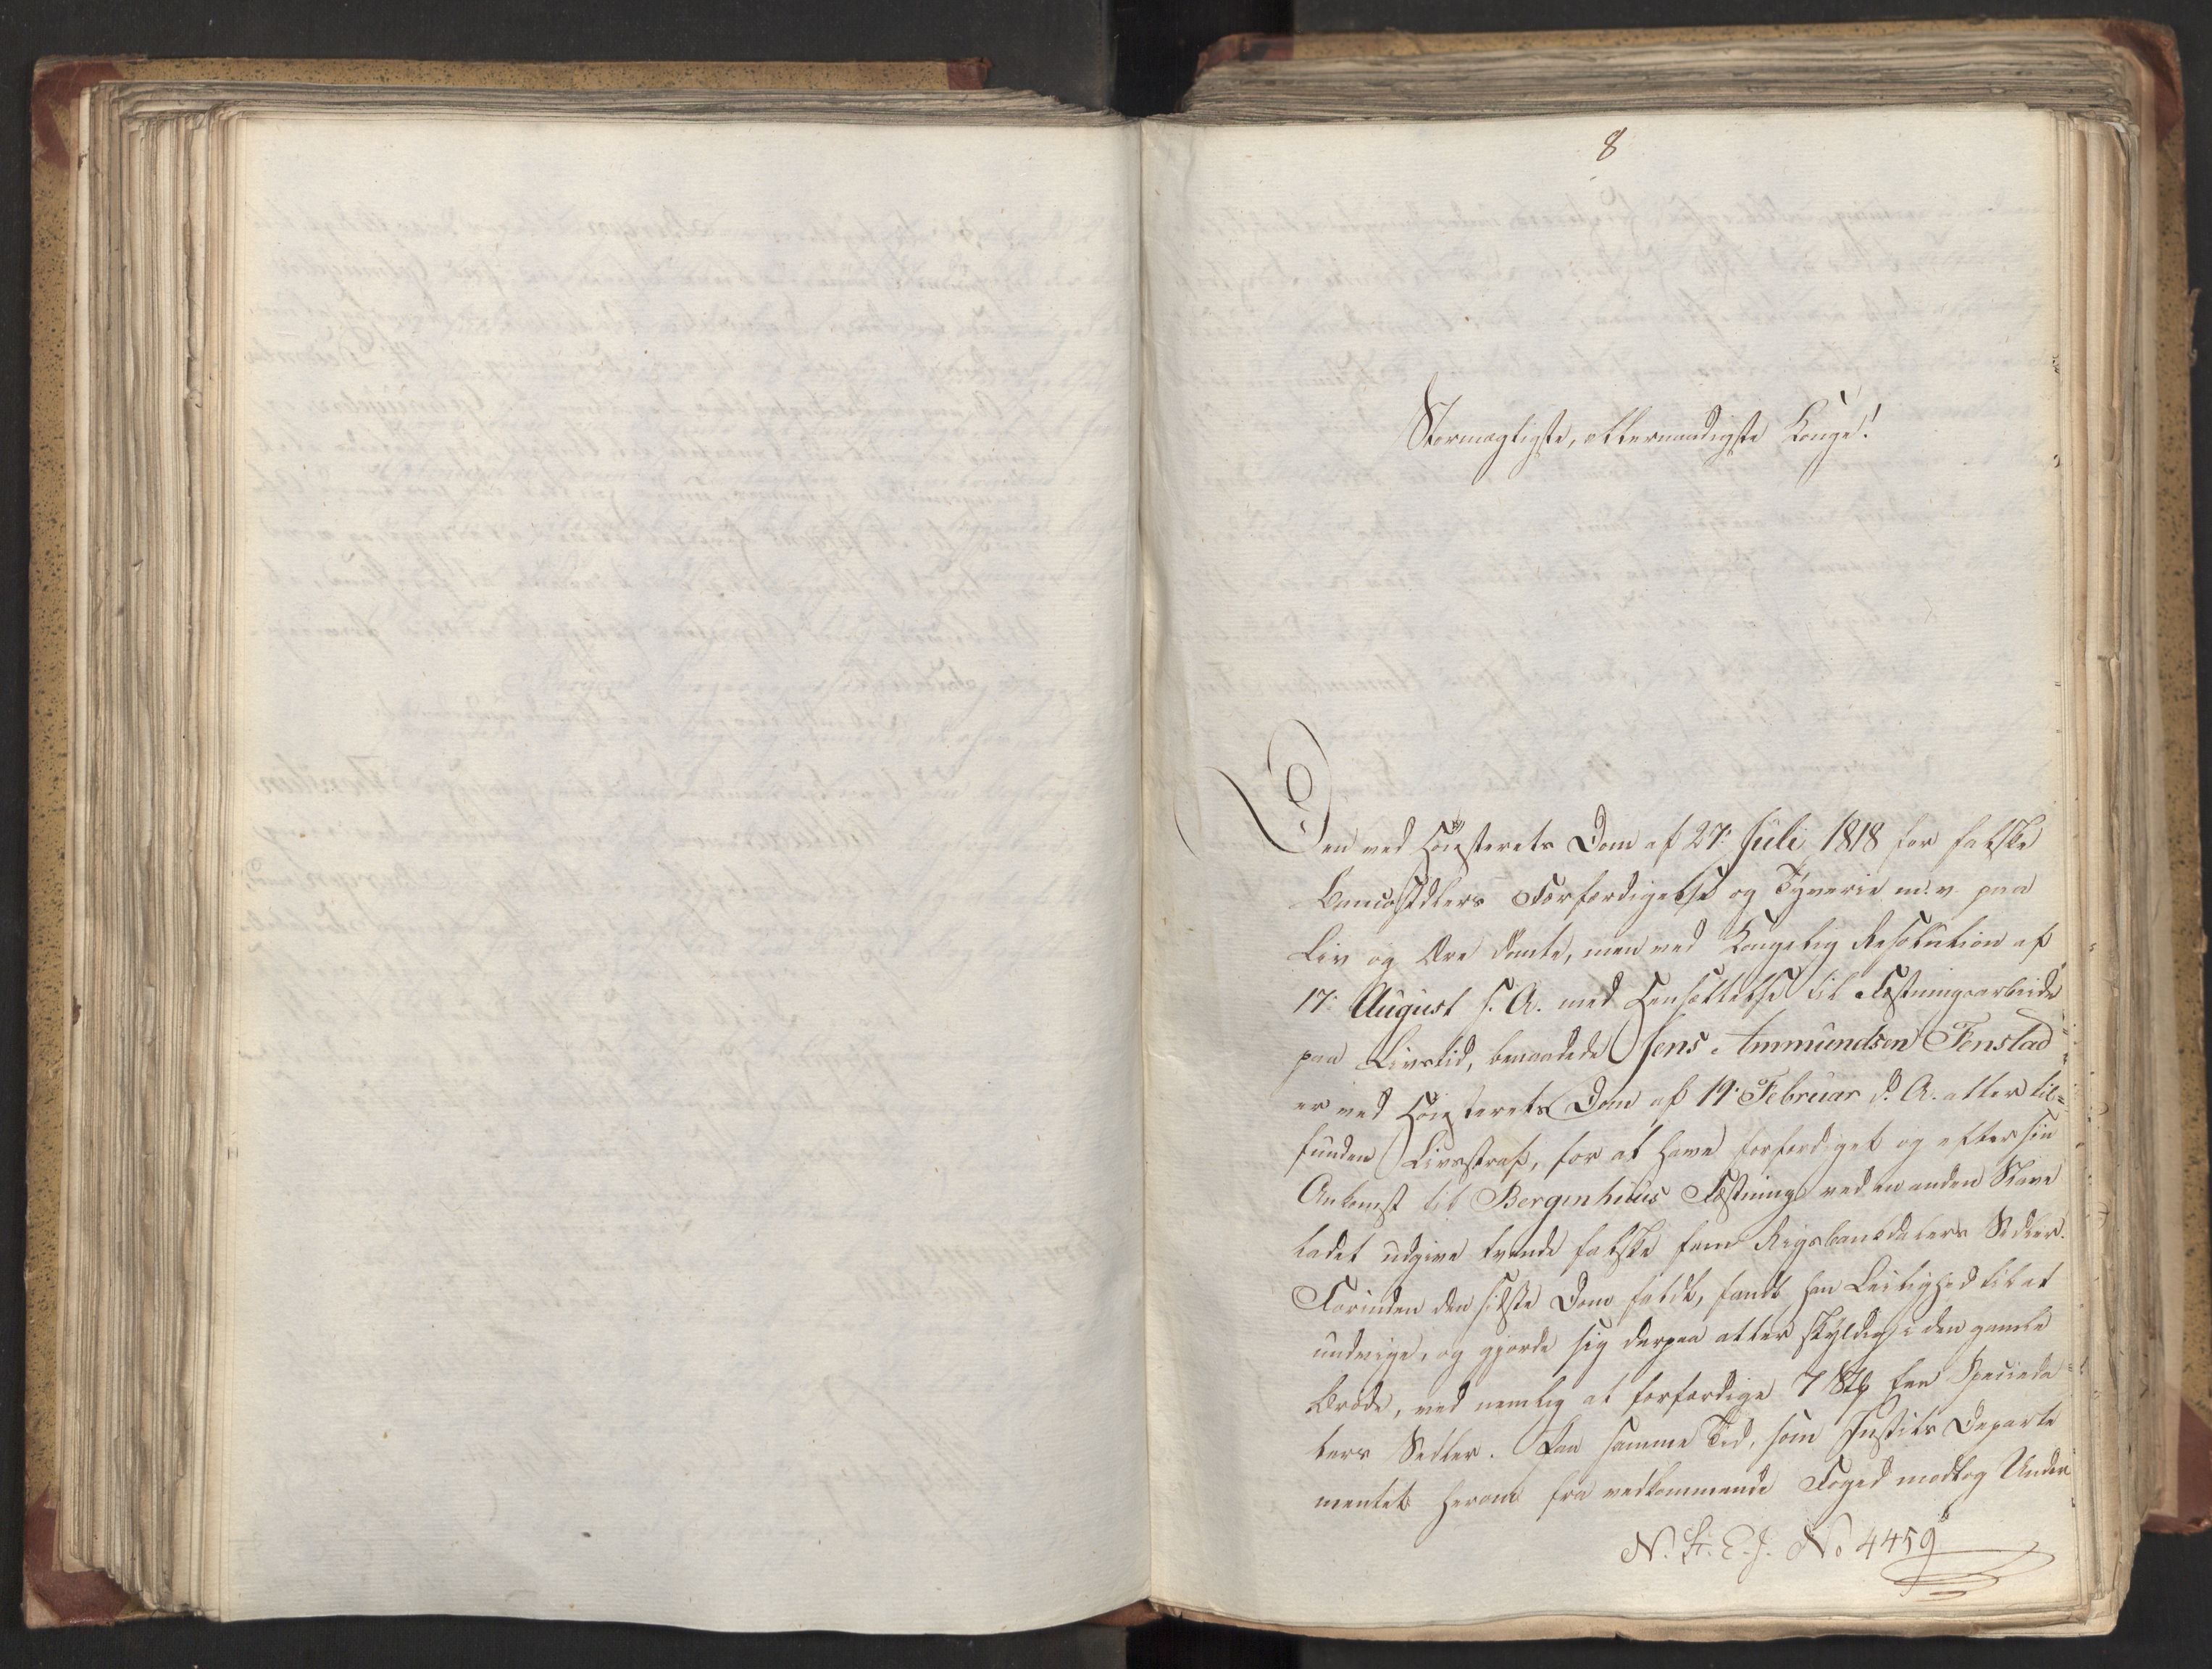 8
Stormægtigste, allernaadigste Konge!
Den ved Høiesterets Dom af 27: Juli 1818 for falske
Bancosedlers Forfærdigelse og Tyverie m: v. paa
Liv og Ære dømte, men ved Kongelig Resolution af
17: August s. A. med Hensættelse til Fæstningsarbeide
paa Livstid, benaadede Jens Ammundsen Fenstad
er ved Høiesterets Dom af 19: Februar d. A. atter til=
funden Livsstraf, for at have forfærdiget og efter sin
Ankomst til Bergenhuus Fæstning ved en anden Slave
ladet udgive tvende falske fem Rigsbankdalers Sedler.
Forinden den sidste Dom faldt, fandt han Leilighed til at
undvige, og gjorde sig derpaa atter skyldig i den gamle
Brøde, ved nemlig at forfærdige 7 Stk een Specieda=
lers Sedler. Paa samme Tid, som Justits Departe
mentet herom fra vedkommende Foged modtog Under
N. St. E. J. No 4459